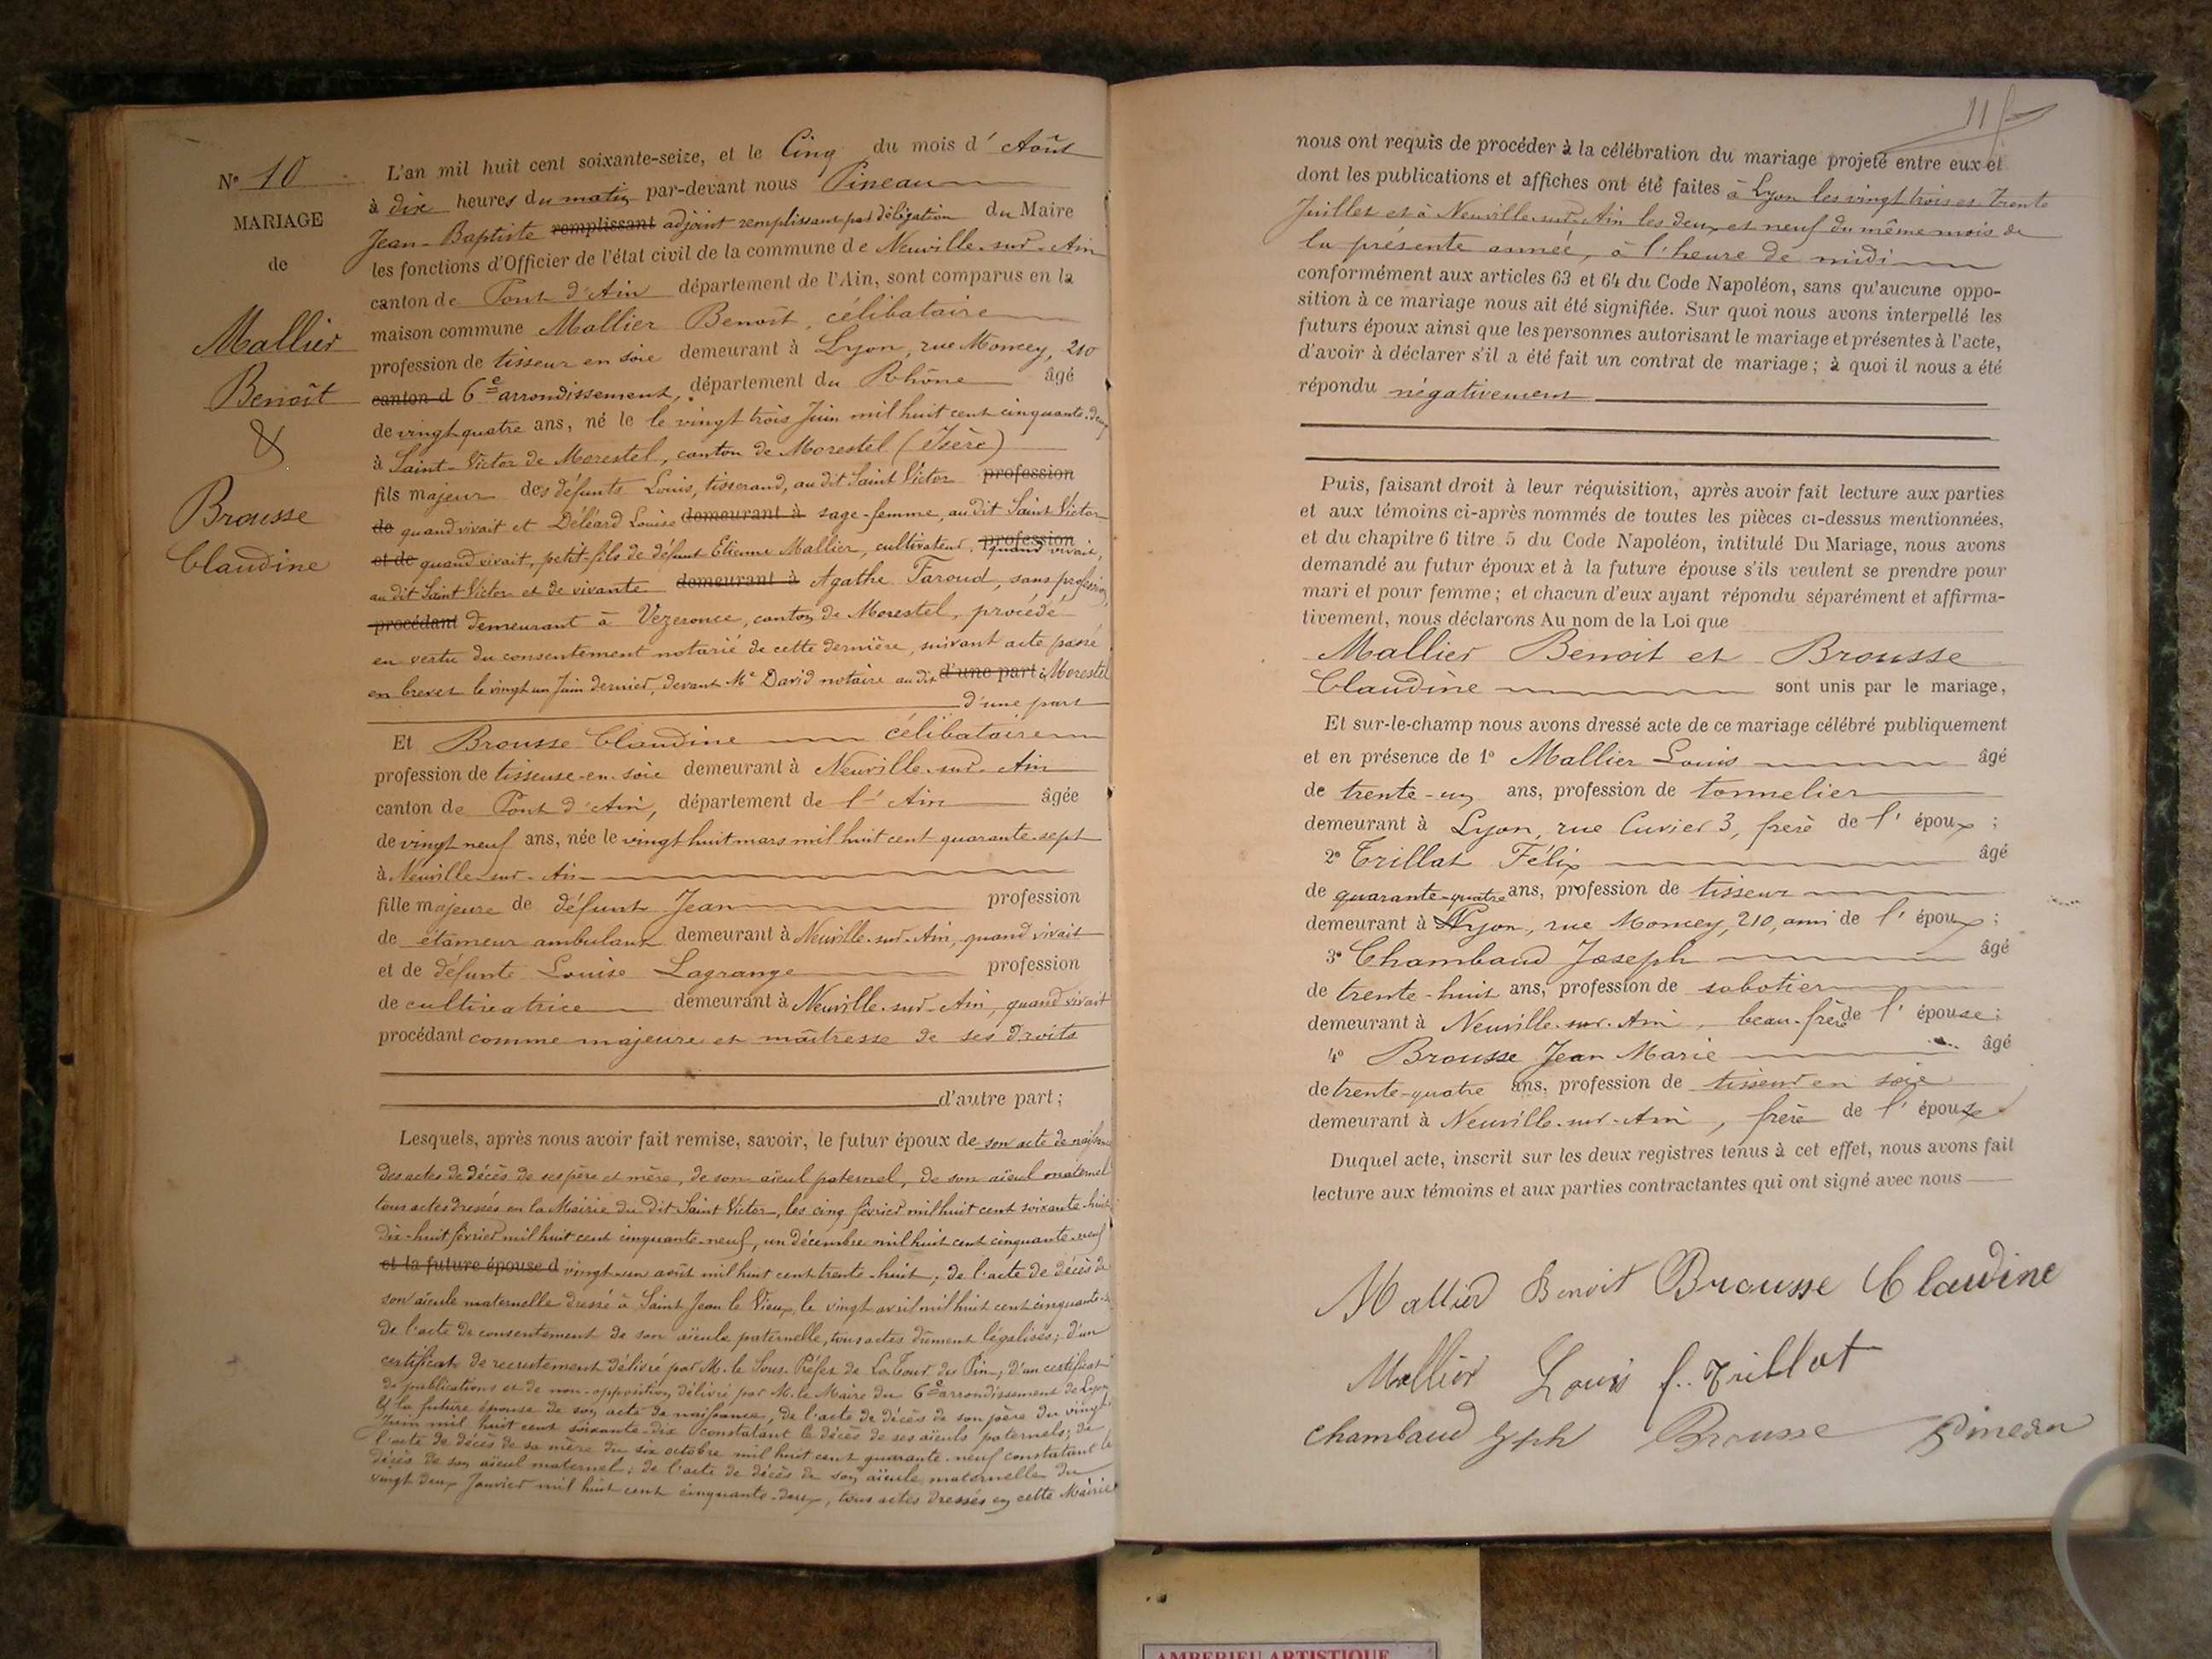 N° 10
MARIAGE
de
Mallier
Benoît
&
Brousse
Claudine
L'an mil huit cent soixante-seize, et le Cinq du mois d' Août
à dix heures du matin par-devant nous Pineau
Jean-Baptiste remplissant adjoint remplissant par délégation du Maire
les fonctions d'Officier de l'état civil de la commune de Neuville-sur-Ain
canton de Pont d'Ain département de l'Ain, sont comparus en la
maison commune Mallier Benoît, célibataire
profession de tisseur en soie demeurant à Lyon, rue Moncey, 210
canton d 6e arrondissement, département du Rhône âgé
de vingt-quatre ans, né le le vingt trois Juin mil huit cent cinquante-deux
à Saint-Victor de Morestel, canton de Morestel (Isère)
fils majeur des défunts Louis, tisserand, au dit Saint Victor profession
de quand vivait et Déléard Louise demeurant à sage-femme, au dit Saint Victor
et de quand vivait, petit-fils de défunt Etienne Mallier, cultivateur, profession quand vivait,
au dit Saint Victor et de vivante demeurant à Agathe Faroud, sans profession,
procédant demeurant à Vezeronce, canton de Morestel, procédé
en vertu du consentement notarié de cette dernière, suivant acte passé
en brevet le vingt un Juin dernier, devant Me David notaire au dit d'une part Morestel
d'une part
Et Brousse Claudine célibataire
profession de tisseuse-en-soie demeurant à Neuville-sur-Ain
canton de Pont d'Ain, département de l'Ain âgée
de vingt neuf ans, née le vingt huit mars mil huit cent quarante-sept
à Neuville-sur-Ain
fille majeure de défunt Jean profession
de étameur ambulant demeurant à Neuville-sur-Ain, quand vivait
et de défunte Louise Lagrange profession
de cultivatrice demeurant à Neuville-sur-Ain, quand vivait
procédant comme majeure et maîtresse de ses droits
d'autre part;
Lesquels, après nous avoir fait remise, savoir, le futur époux de son acte de naissance
des actes de décès de ses père et mère, de son aïeul paternel, de son aïeul maternel
tous actes dressés en la Mairie du dit Saint Victor, les cinq février mil huit cent soixante-huit
dix-huit février mil huit cent cinquante-neuf, un décembre mil huit cent cinquante-neuf
et la future épouse d vingt-un août mil huit cent trente-huit, de l'acte de décès de
son aïeule maternelle dressé à Saint Jean le Vieux, le vingt avril mil huit cent cinquante
de l'acte de consentement de son aïeule paternelle, tous actes dûment légalisés; d'un
certificat de recrutement délivré par M. le Sous-Préfet de La Tour du Pin, d'un certificat
de publications et de non-opposition délivré par M. le Maire du 6e arrondissement de Lyon
Et la future épouse de son acte de naissance, de l'acte de décès de son père du vingt
Juin mil huit cent soixante-dix constatant le décès de ses aïeuls paternels; de
l'acte de décès de sa mère du six octobre mil huit cent quarante-neuf constatant le
décès de son aïeul maternel; de l'acte de décès de son aïeule maternelle du
vingt deux Janvier mil huit cent cinquante-deux, tous actes dressés en cette Mairie
11
nous ont requis de procéder à la célébration du mariage projeté entre eux et
dont les publications et affiches ont été faites à Lyon les vingt trois et trente
Juillet et à Neuville-sur-Ain les deux et neuf du même mois de
la présente année, à l'heure de midi
conformément aux articles 63 et 64 du Code Napoléon, sans qu'aucune oppo-
sition à ce mariage nous ait été signifiée. Sur quoi nous avons interpellé les
futurs époux ainsi que les personnes autorisant le mariage et présentes à l'acte,
d'avoir à déclarer s'il a été fait un contrat de mariage; à quoi il nous a été
répondu négativement
Puis, faisant droit à leur réquisition, après avoir fait lecture aux parties
et aux témoins ci-après nommés de toutes les pièces ci-dessus mentionnées,
et du chapitre 6 titre 5 du Code Napoléon, intitulé Du Mariage, nous avons
demandé au futur époux et à la future épouse s'ils veulent se prendre pour
mari et pour femme; et chacun d'eux ayant répondu séparément et affirma-
tivement, nous déclarons Au nom de la Loi que
Mallier Benoit et Brousse
Claudine sont unis par le mariage,
Et sur-le-champ nous avons dressé acte de ce mariage célébré publiquement
et en présence de 1° Mallier Louis âgé
de trente-un ans, profession de tonnelier
demeurant à Lyon, rue Cuvier 3, frère de l' époux;
2° Trillat Félix âgé
de quarante-quatre ans, profession de tisseur
demeurant à Lyon, rue Moncey, 210, ami de l' époux;
3° Chambaud Joseph âgé
de trente-huit ans, profession de sabotier
demeurant à Neuville-sur-Ain, beau-frère de l' épouse;
4° Brousse Jean Marie âgé
de trente-quatre ans, profession de tisseur en soie
demeurant à Neuville-sur-Ain, frère de l' épouse
Duquel acte, inscrit sur les deux registres tenus à cet effet, nous avons fait
lecture aux témoins et aux parties contractantes qui ont signé avec nous
Mallier Benoit Brousse Claudine
Mallier Louis f. Trillat
Chambaud Jph Brousse Pineau
AMBERIEU ARTISTIQUE